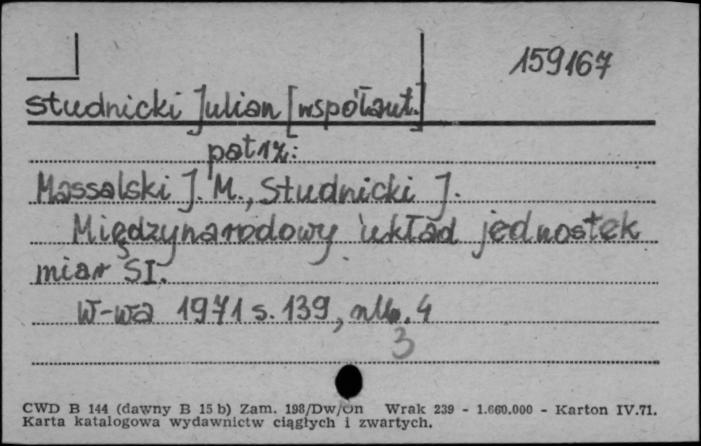 159167
Studnicki Julian [współaut.]
patrz:
Massalski J. M., Studnicki J.
Międzynarodowy układ jednostek
miar SI.
W-wa 1971 s. 139, nlb. 4
3
CWD B 144 (dawny B 15 b) Zam. 198/Dw/On Wrak 239 - 1.660.000 - Karton IV.71.
Karta katalogowa wydawnictw ciągłych i zwartych.